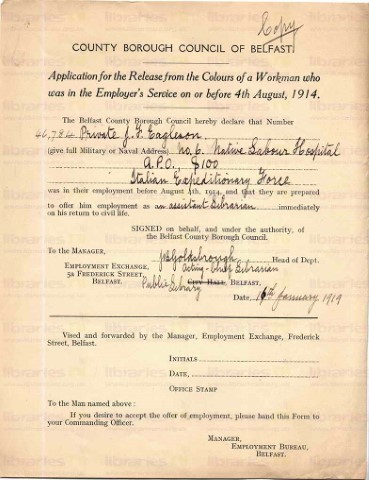 Copy
COUNTY BOROUGH COUNCIL OF BELFAST.
Application for the Release from the Colours of a Workman who
was in the Employer's Service on or before 4th August, 1914.
The Belfast County Borough Council hereby declare that Number
46,784 Private J. F. Eagleson
(give full Military or Naval Address) No. 6. Native Labour Hospital
A.P.O., S100
Italian Expeditionary Force
was in their employment before August 4th, 1914, and that they are prepared
to offer him employment as an assistant Librarian immediately
on his return to civil life.
SIGNED on behalf, and under the authority, of
the Belfast County Borough Council.
To the MANAGER,
JB Goldsbrough Head of Dept.
Acting-Chief Librarian
EMPLOYMENT EXCHANGE,
5A FREDERICK STREET,
BELFAST.
Public Library City Hall, BELFAST,
Date, 16th January 1919
Vised and forwarded by the Manager, Employment Exchange, Frederick
Street, Belfast.
INITIALS
DATE,
OFFICE STAMP
To the Man named above:
If you desire to accept the offer of employment, please hand this Form to
your Commanding Officer.
MANAGER,
EMPLOYMENT BUREAU,
BELFAST.
libraries